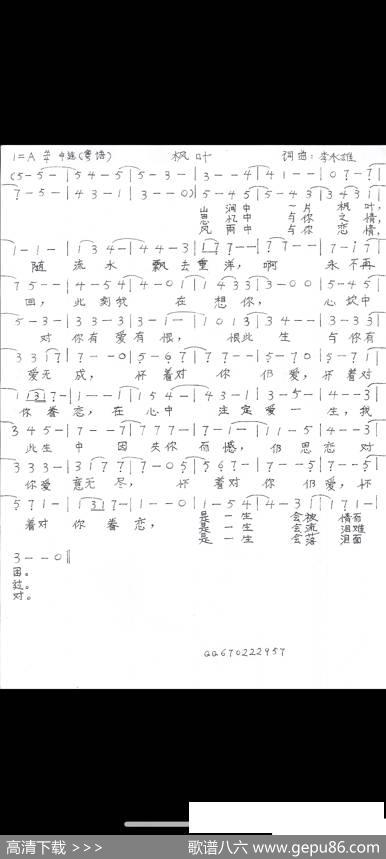 1=A 4/4 中速(粤语) 枫叶 词曲:李永雄
(5-5-|54-5|5-3-|3--4|41--|07-7|
7-5-|43-1|3--0)|5-45|5-43|3431|
山涧中 一片枫叶,
思忆中 与你之情,
风雨中 与你恋情,
1-1-|134-|44-3|177--|77--|7-17|
随流水 飘去重洋,啊 永不再
75--|4-54|4-01|1433|3-00|5-45|
回,此刻我 在想你, 心坎中
5-3-|33-3|3-1-|1013|34--|3-33|
对你有爱有恨,恨此生 与你有
3317|7--0|5-67|77--|5-70|5-71|
爱无成,怀着对你 仍爱,怀着对
1317-|1--1|154-|43-1|3-5-|4--3|
你眷恋,在心中 注定爱一生,我
345-|7--7|777-|7-1-|11-5|4--3|
此生中 因失你而憾,仍思恋对
333-|3177|7-05|567-|7--5|7-7-|
你爱意无尽,怀着对你仍爱,怀
571-|1317-|1--0|1-54|4-31|171-|
着对你眷恋, 是一生 会被情而
是一生 会流泪难
是一生 会落泪面
3--0‖
困。
过。
对。
qq670222957
高清下载 >>> 歌谱八六 www.gepu86.com